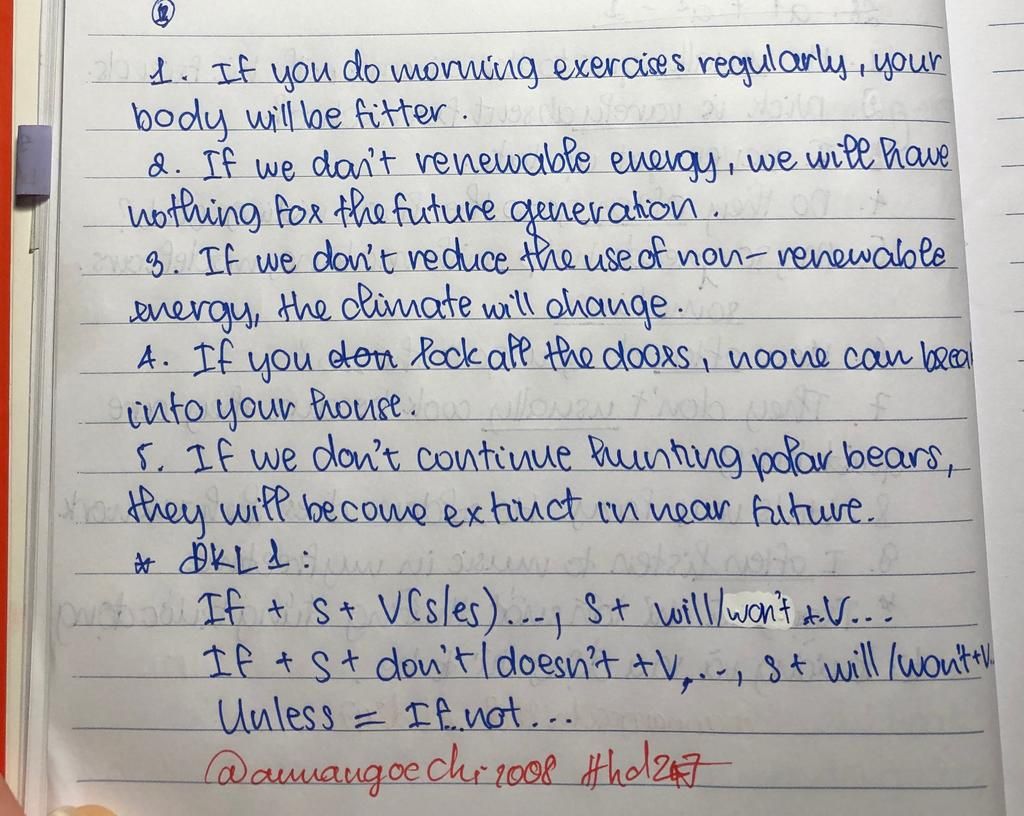 1. If you do morning exercises regularly, your
body will be fitter.
2. If we don't renewable energy, we will have
nothing for the future generation.
3. If we don't reduce the use of non-renewable
energy, the climate will change.
4. If you lock all the doors, noone can brea
into your house.
5. If we don't continue hunting polar bears,
they will become extinct in near future.
* ĐKL1:
If + S + V(s/es)..., S + will/won't + V...
If + S + don't/doesn't + V,..., S + will/won't + V..
Unless = If..not...
#hd247